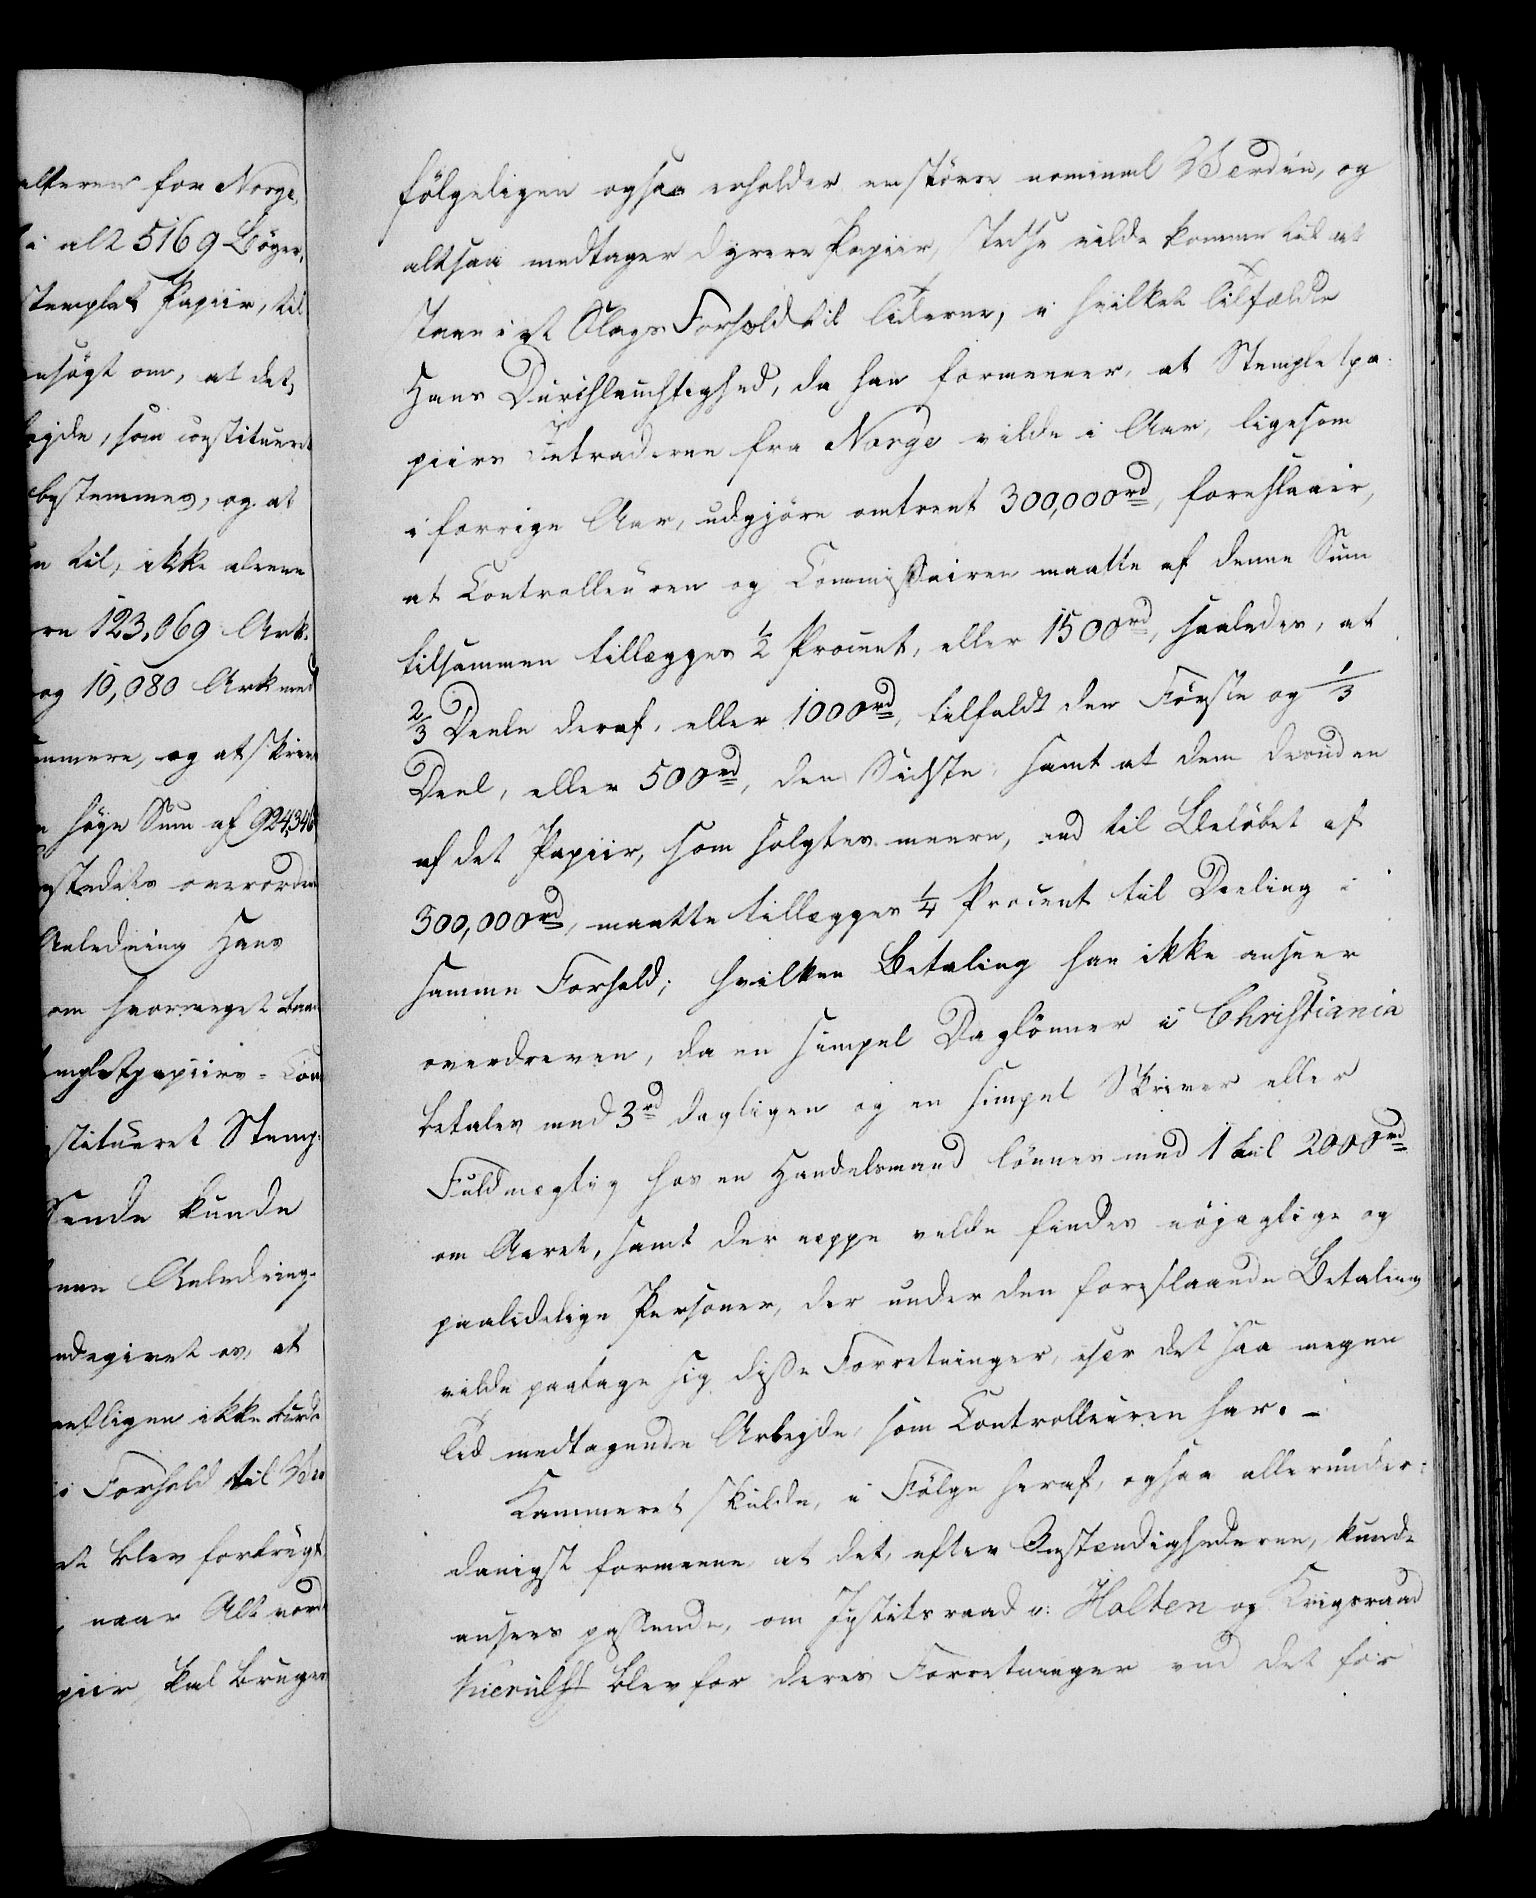 alteren for Norge,
i alt 5169 Bøger,
stemplet Papiir, til
nsögt om, at det,
bejde, som constitueret
bestemmes, og at
n til, ikke alene
re 123,069 Ark.
og 10,080 Ark med
ummere, og at skrive
n høye Sum af 924,346
stedets overordn
Anledning Hans
om hvormeget Baa
mpletpapiirs-Con
stitueret Stemp:
Sende kunde
nne Anledning
ndegivet os, at
entligen ikke turde
i Forhold til Vær
et blev forbrugt,
, naar Alt vor
piir, kul bruges
fölgeligen ogsaa erholder en större nominel Værdie, og
altsaa medtager dyrere Papiir, stedse vilde komme til at
staae i et Slags Forhold til Tiderne, i hvilket Tilfælde
Hans Durchlauchtighed, da han formener, at Stempletpa-
piirs Intraderne fra Norge vilde i Aar, ligesom
i forrige Aar, udgjöre omtrent 300,000rd, foreslaaer,
at Controlleuren og Commissairen maatte af denne Sum
tilsammen tillægges ½ Procent, eller 1500rd, saaledes, at
2/3 Deele deraf, eller 1000rd, tilfaldt den Förste og 1/3
Deel, eller 500rd, den Sidste, samt at dem desuden
af det Papiir, som solgtes meere, end til Belöbet af
300,000rd, maatte tillægges ¼ Procent til Deeling i
samme Forhold; hvilken Betaling han ikke anseer
overdreven, da en simpel Daglönner i Christiania
betales med 3rd dagligen og en simpel Skriver eller
Fuldmægtig hos en Handelsmand lönnes med 1 til 2000rd
om Aaret, samt der neppe vilde findes nöjagtige og
paalidelige Personer, der under den foreslaaede Betaling
vilde paatage sig disse Forretninger, især det saa megen
Tid medtagende Arbejde, som Controlleuren har. –
Kammeret skulde, i Fölge heraf, ogsaa allerunder-
danigst formeene at det, efter Omstændighederne, kunde
ansees passende, om Justitsraad v: Holten og Krigsraad
Kierulff blev for deres Forretninger ved det for